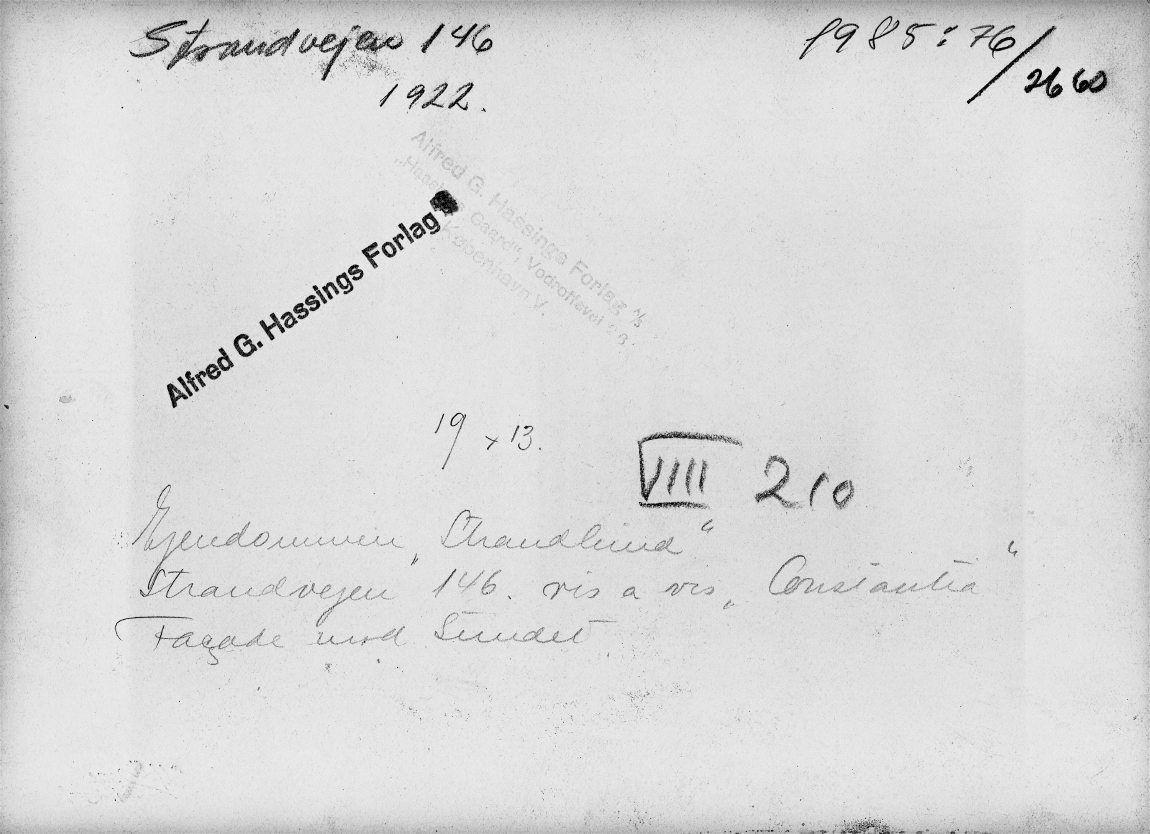 Strandvejen 146
1922.
1985:76/2660
Alfred G. Hassings Forlag A/S
"Hassings Gaard", Vodroffsvej 26
København V.
Alfred G. Hassings Forlag
19 x 13.
VIIII 210
Ejendommen „Strandlund“
Strandvejen 146. vis a vis „Constantia“
Façade mod Sundet